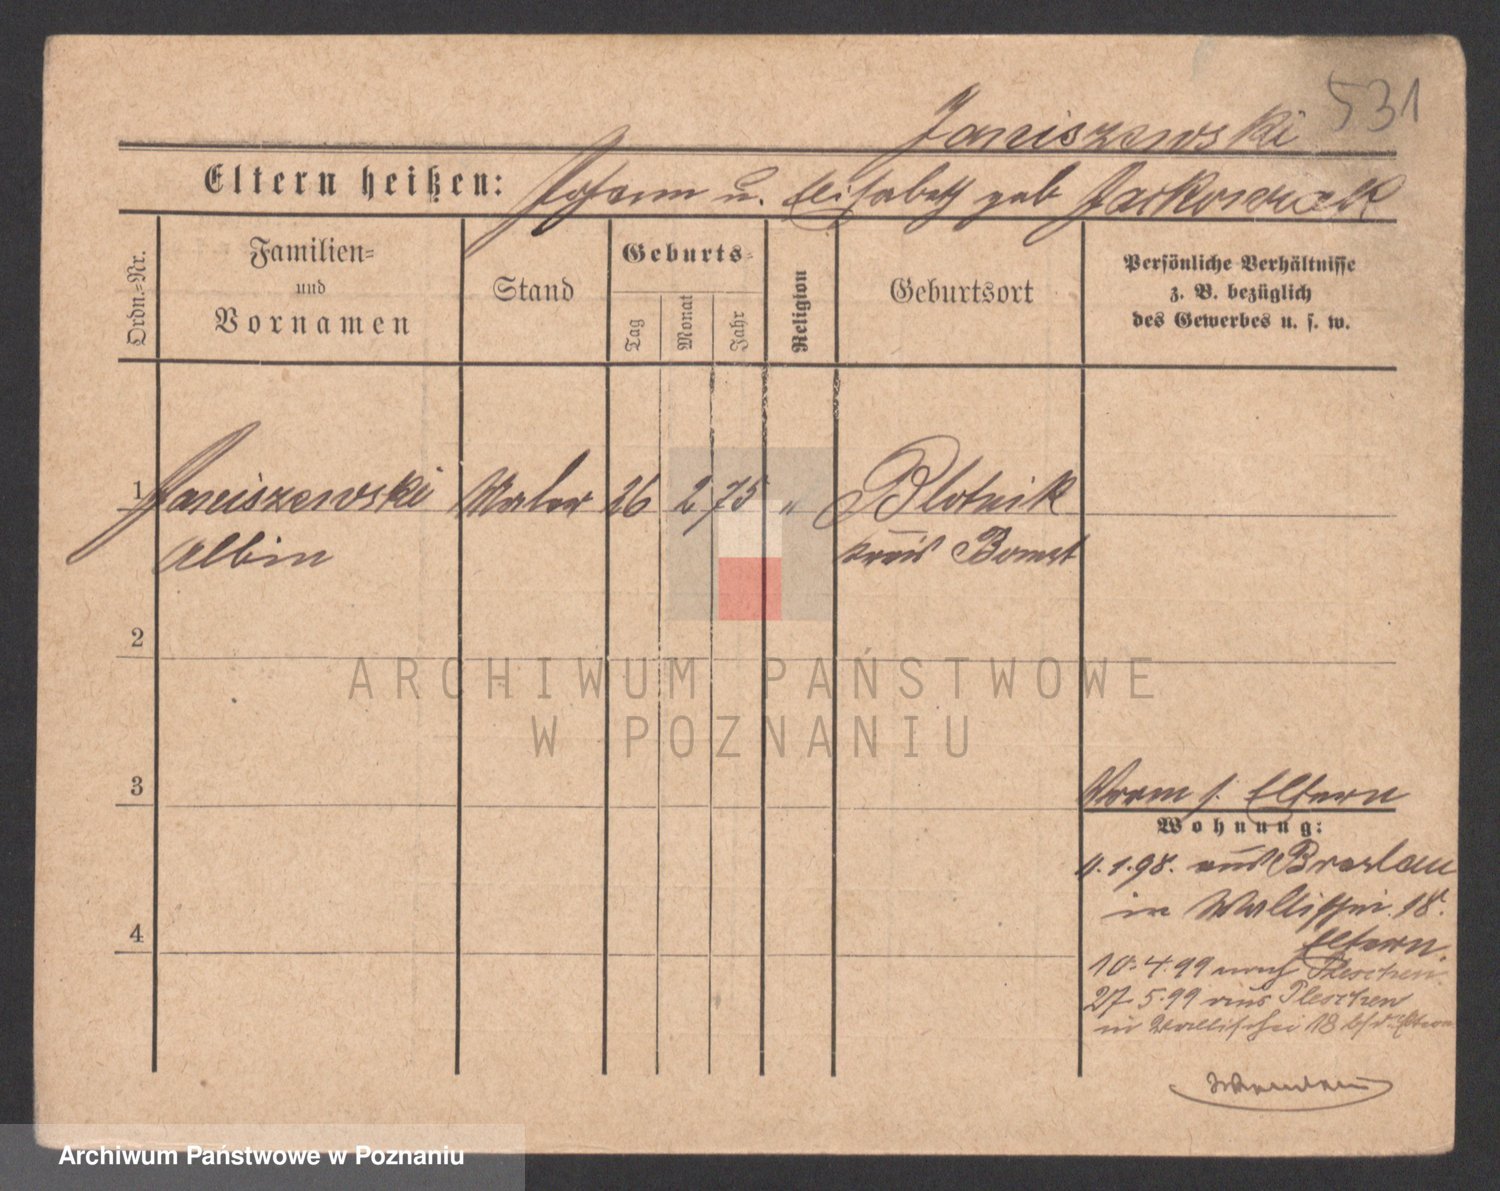 531
Janiszewski
Eltern heißen: Johann u. Elisabeth geb Jackowiak
Ordn.-Nr.
Familien- und Vornamen
Stand
Geburts-
Tag
Monat
Jahr
Religion
Geburtsort
Persönliche Verhältnisse
z. B. bezüglich
des Gewerbes u. s. w.
1 Janiszewski Maler 26 2 75 " Blotnik
Albin Kreis Bomst
2
ARCHIWUM PAŃSTWOWE
W POZNANIU
3
Eltern
Wohnung:
4.1.98. aus Breslau
in Wallischei 18.
Eltern.
4
10.4.99 nach Pleschen
27.5.99 aus Pleschen
in Wallischei 18 bei d. Eltern
Archiwum Państwowe w Poznaniu